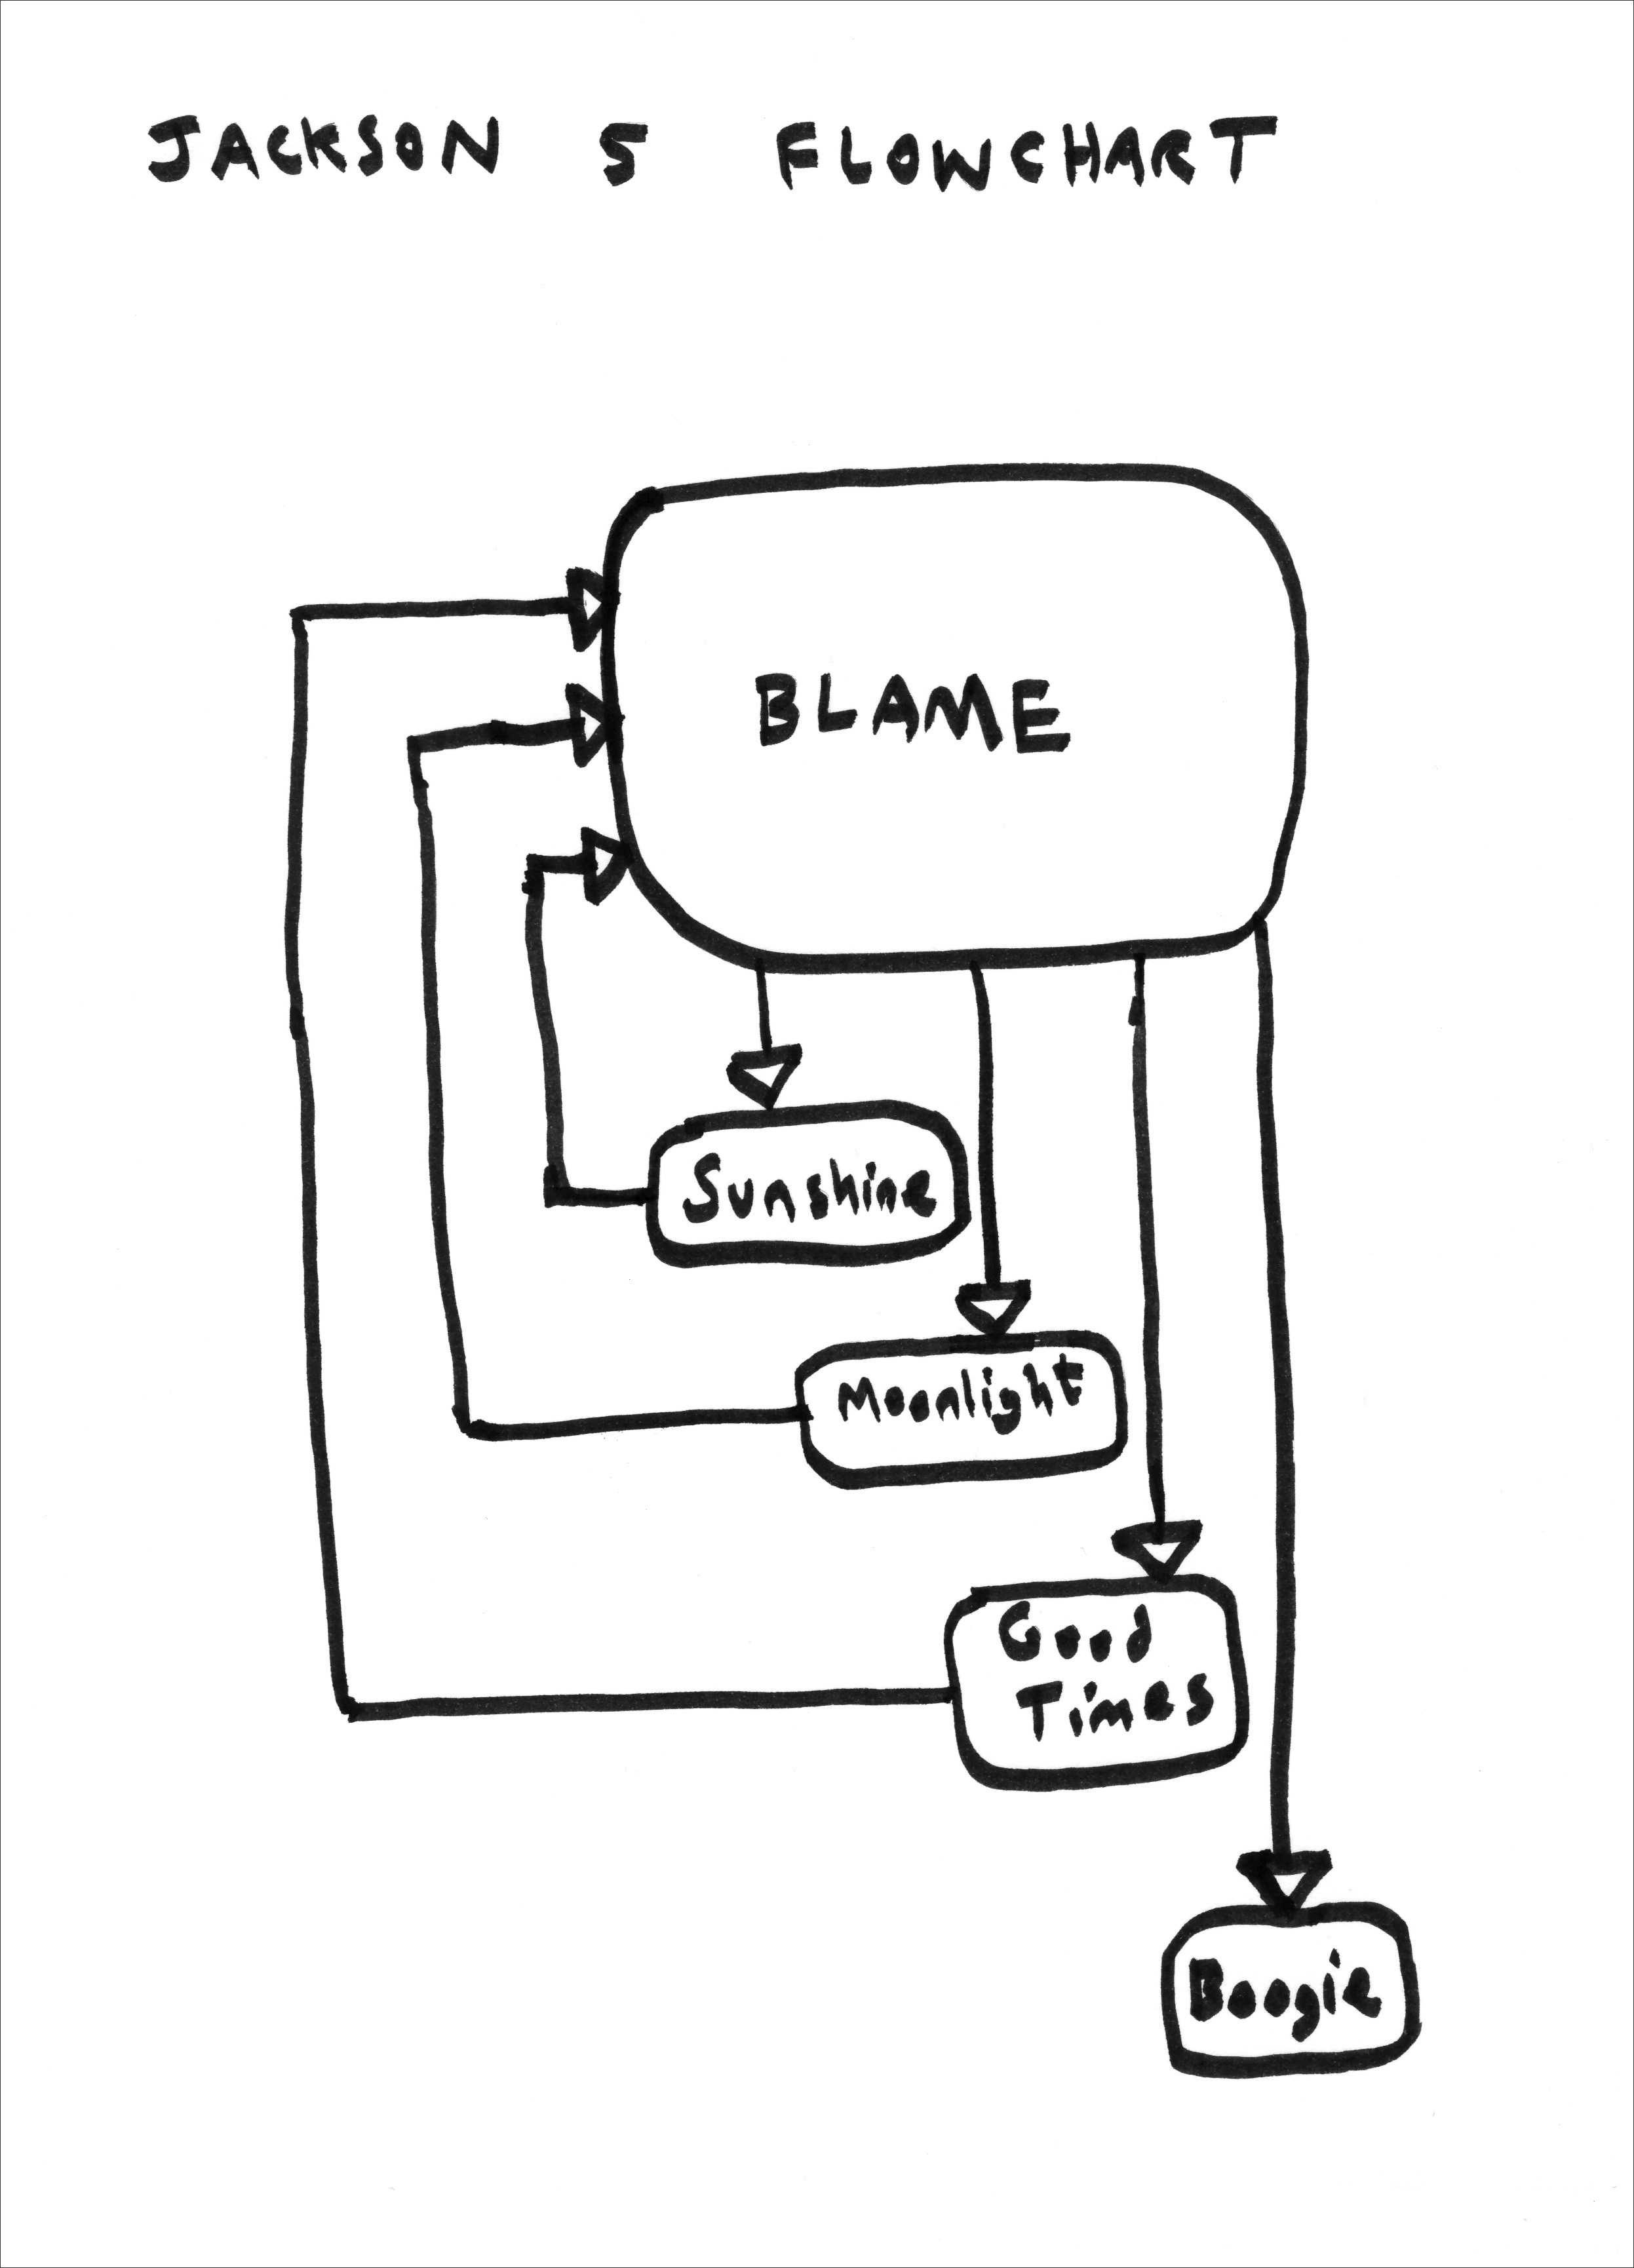 JACKSON 5 FLOWCHART
BLAME
Sunshine
Moonlight
Good
Times
Boogie